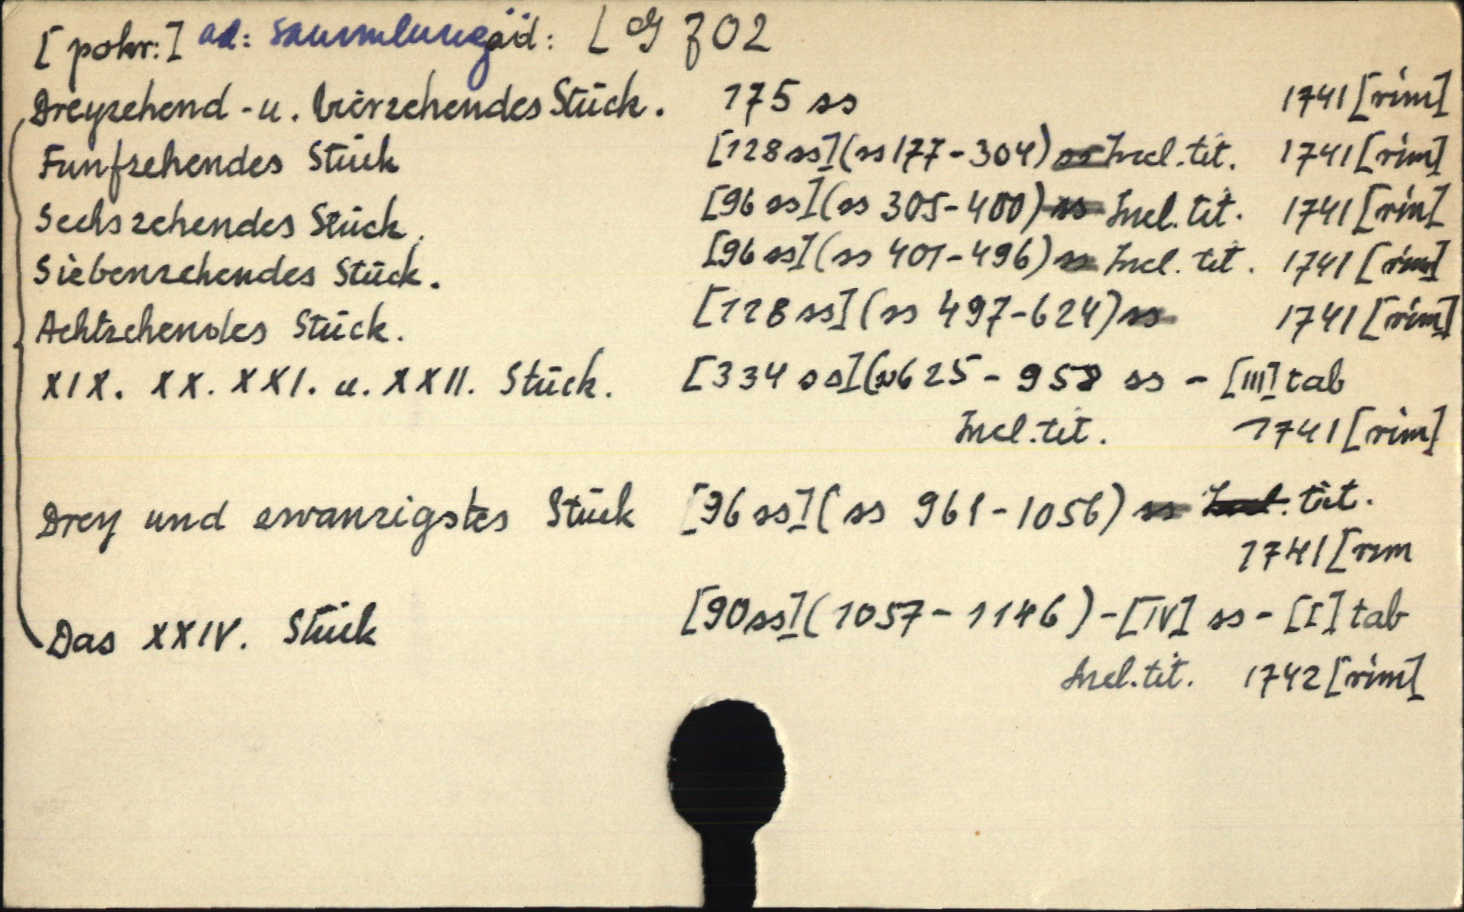 [pokr:] ad: Sammlung äd: L G 702
Dreyzehend - u. Vierzehendes Stück. 175 ss 1741 [rim]
Funfzehendes Stück [128 ss] (ss 177-304) Incl. tit. 1741 [rim]
Sechszehendes Stück. [96 ss] (ss 305-400) Incl. tit. 1741 [rim]
Siebenzehendes Stück. [96 ss] (ss 401-496) Incl. tit. 1741 [rim]
Achtzehendes Stück. [128 ss] (ss 497-624) 1741 [rim]
XIX. XX. XXI. u. XXII. Stück. [334 ss] (ss 625 - 958 ss - [III] tab
Incl. tit. 1741 [rim]
Drey und zwanzigstes Stück [96 ss] (ss 961-1056) tit.
1741 [rim
Das XXIV. Stück [90 ss] (1057-1146) - [IV] ss - [I] tab
Incl. tit. 1742 [rim]